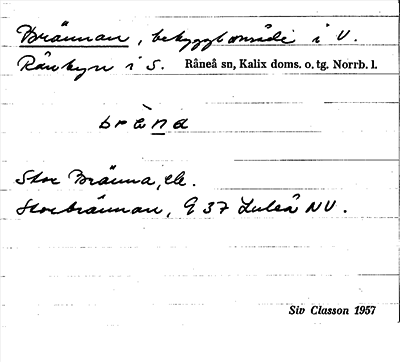 Brännan, bebyggt område i V.
Rånbyn i S. Råneå sn, Kalix doms. o. tg. Norrb. l.
brèna
Stor Bränna, ek.
Storbrännan, 9 37 Luleå NV.
Siv Classon 1957